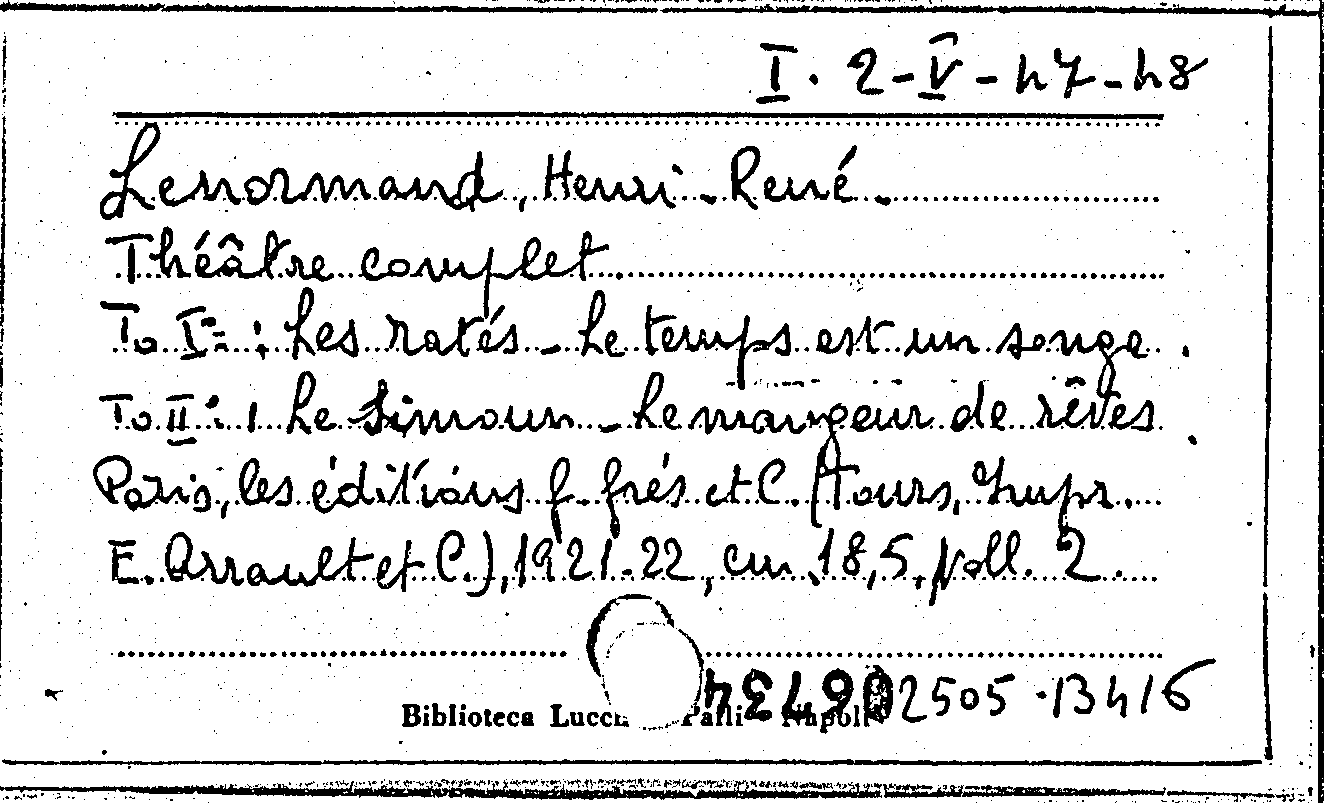 I. 2-V-47-48
Lenormand, Henri-René-
Théâtre complet.
To I°: Les ratés - Le temps est un songe.
To II°: Le Simoun - Le mangeur de rêves.
Paris, les éditions f. frés et C. (Tours, Impr.
E. Arrault et C.), 1921-22, cm. 18,5, voll. 2.
02505.13416
Biblioteca Lucch Palli Napoli